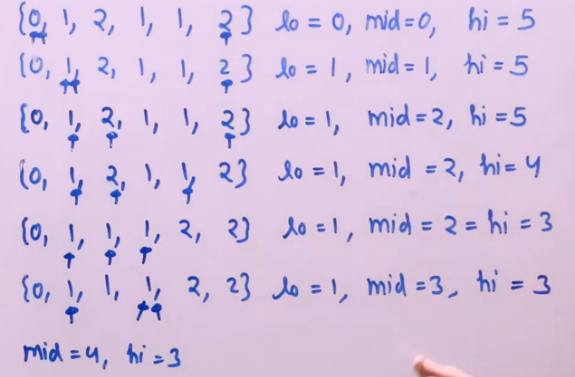 {0, 1, 2, 1, 1, 2} lo = 0, mid=0, hi = 5
{0, 1, 2, 1, 1, 2} lo = 1, mid = 1, hi = 5
{0, 1, 2, 1, 1, 2} lo = 1, mid = 2, hi = 5
{0, 1, 2, 1, 1, 2} lo = 1, mid = 2, hi = 4
{0, 1, 1, 1, 2, 2} lo = 1, mid = 2 = hi = 3
{0, 1, 1, 1, 2, 2} lo = 1, mid = 3, hi = 3
mid = 4, hi = 3